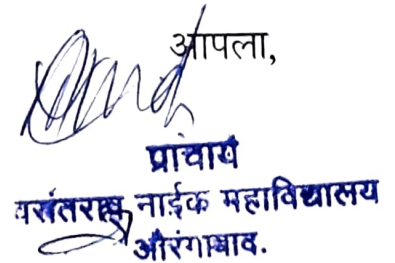 आपला,
प्राचार्य
वसंतराव नाईक महाविद्यालय
औरंगाबाद.